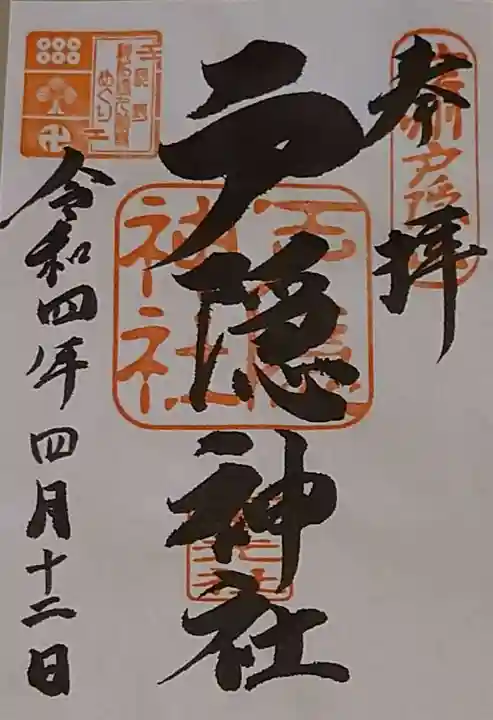 奉拝
戸隠神社
令和四年四月十二日
戸隠神社
めぐり